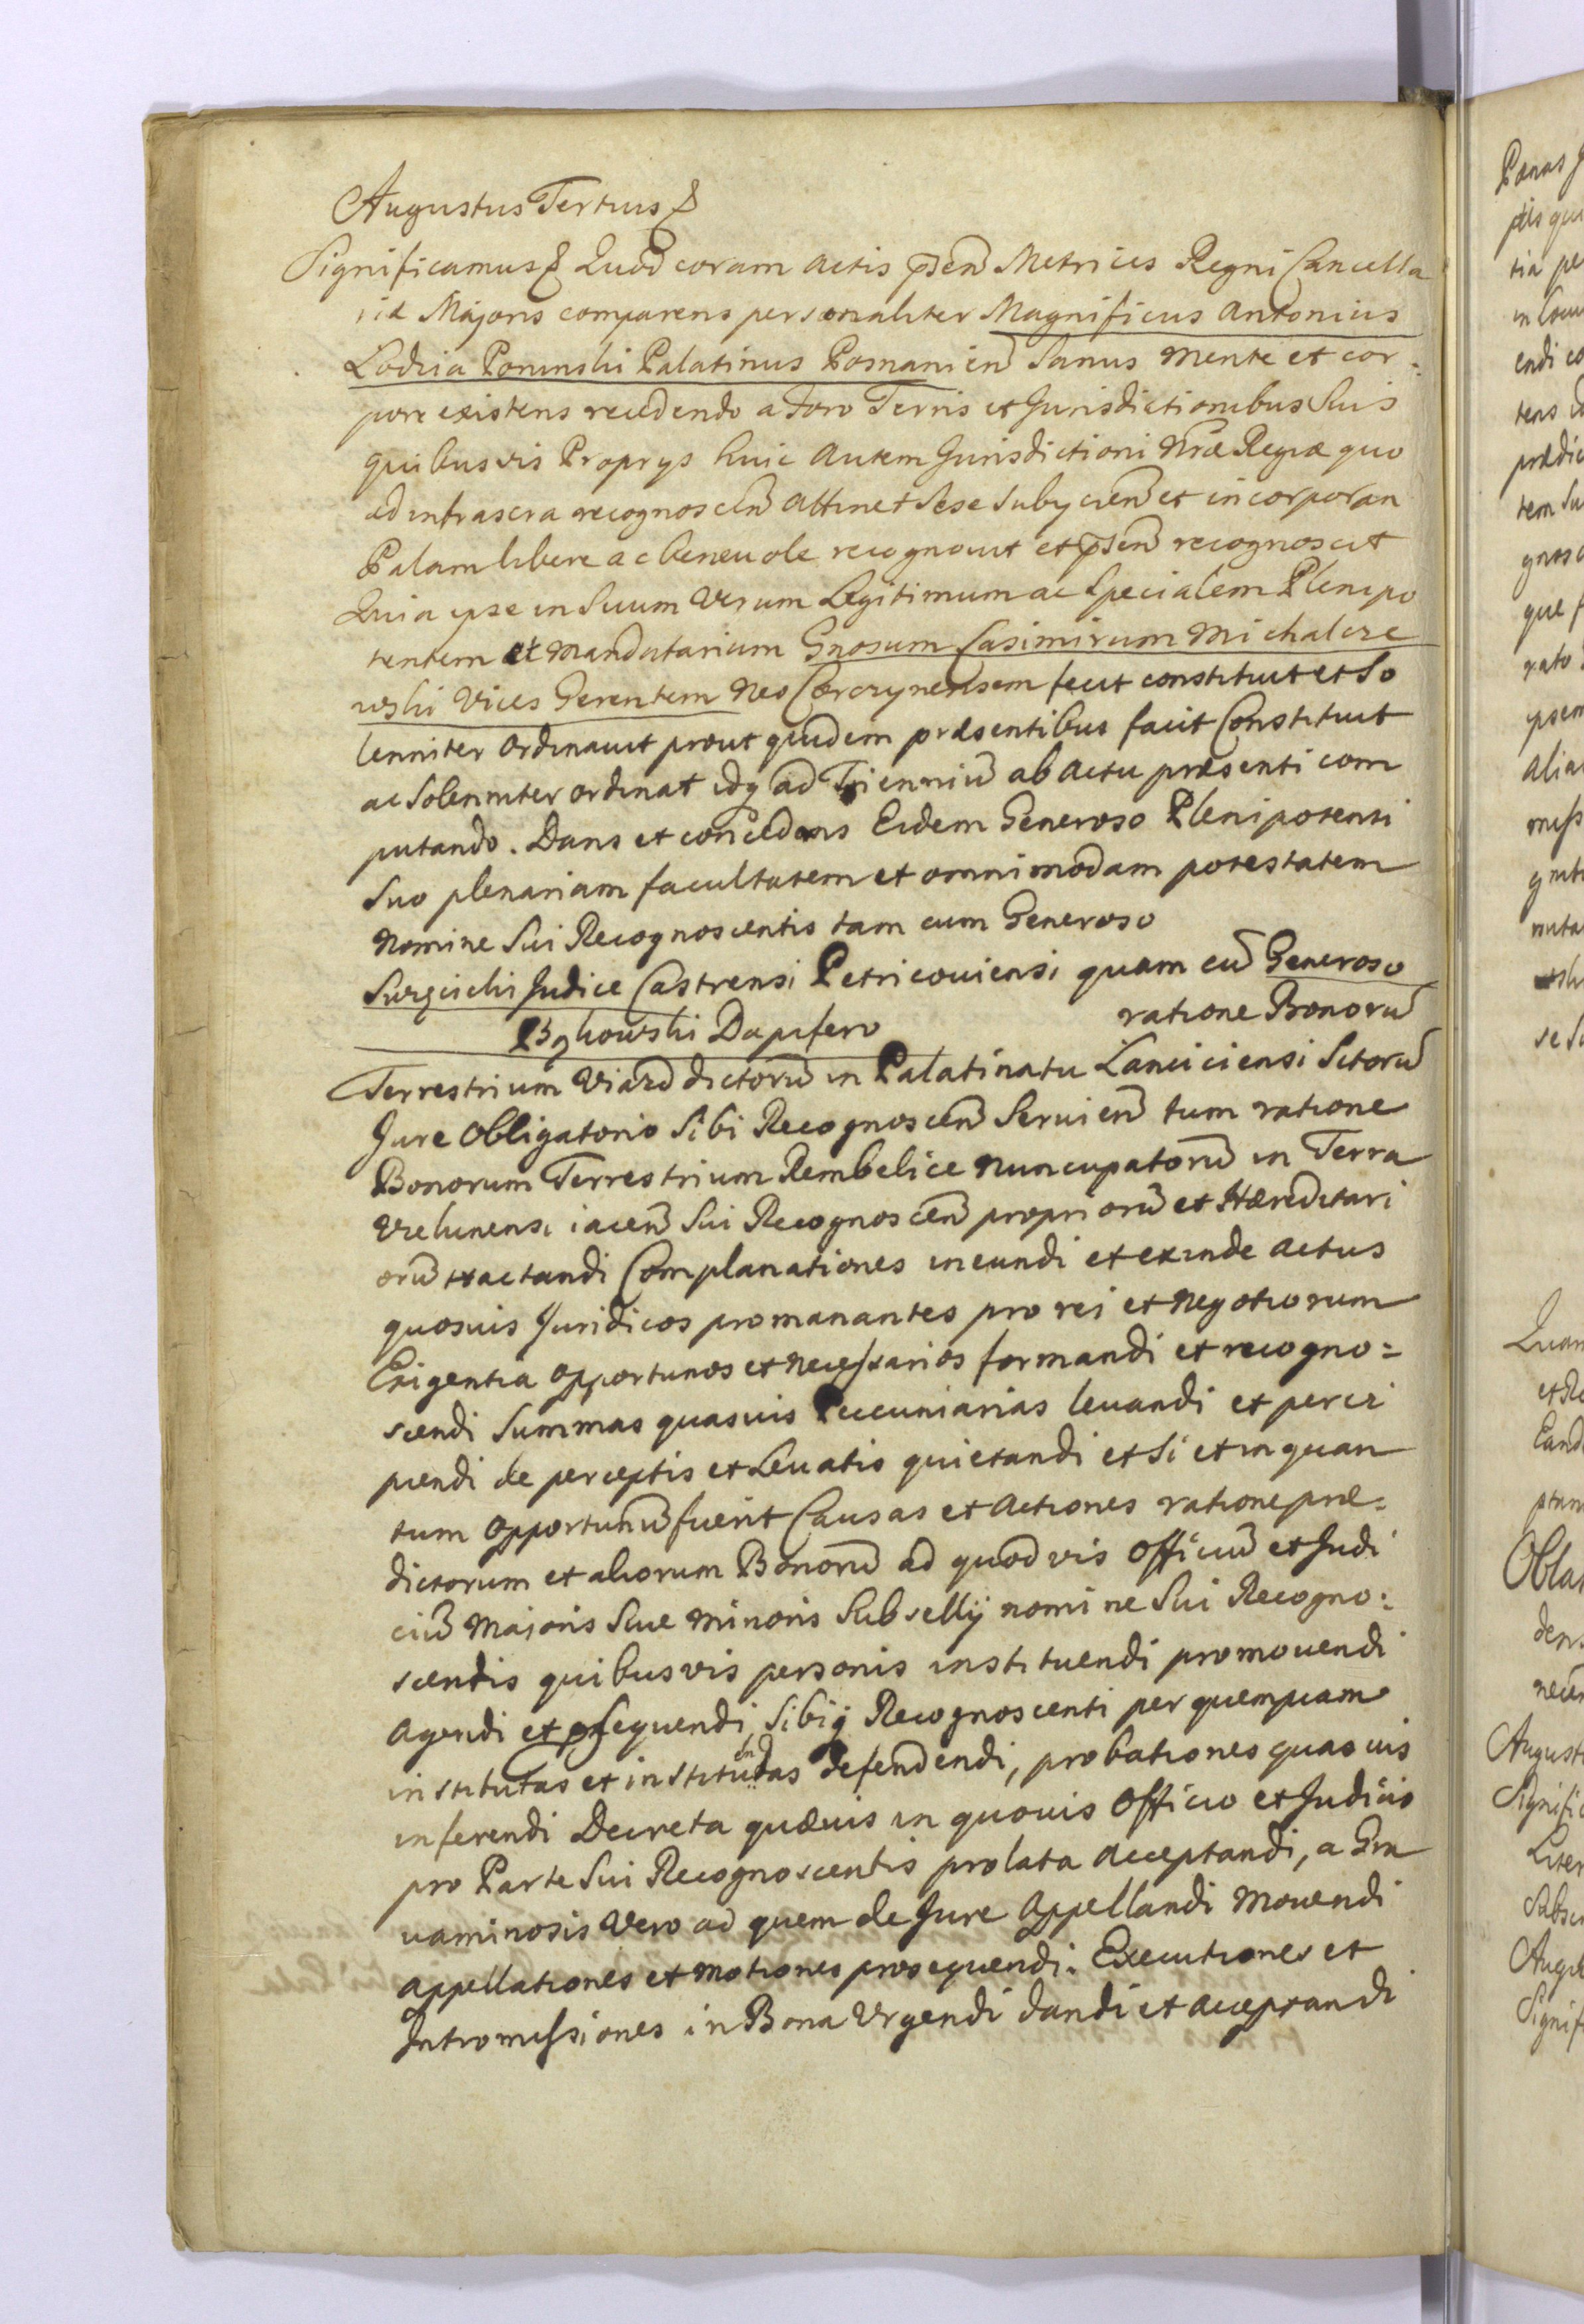 Augustus Tertius &
Significamus & Quod coram Actis p̃sen̄ Metrices Regni Cancella
riæ Majoris comparens personaliter Magnificus Antonius
Lodzia Poninski Palatinus Posnanien̄ Sanus Mente et cor:
pore existens recedendo a Foro Terris et Jurisdictionibus Suis
quibusvis Proprys huic Autem Jurisdictioni Nr̃æ Regiæ quo
ad infrascra recognoscen̄ Attinet Sese Subycien̄ et incorporan
Palam libere ac beneuole recognouit et p̃sen̄ recognoscit
Quia ipse in Suum Verum Legitimum ac Specialem Plenipo
tentem et Mandatarium Gnosum Casimirum Michalcze
wski Vices Gerentem Neo Corczynensem fecit constituit et So
lenniter Ordinauit prout quidem præsentibus facit Constituit
ac Solenniter ordinat idq ad Trienniū ab Actu præsenti com
putando. Dans et concedens Eidem Generoso Plenipotenti
Suo plenariam facultatem et omnimodam potestatem
Nomine Sui Recognoscentis tam cum Generoso
Judice Castrensi Petricouiensi quam cū Generoso
Bykowski Dapifero ratione Bonorū
Terrestrium dictorū in Palatinatu Lanciciensi Sitorū
Jure Obligatorio Sibi Recognoscen̄ Seruien̄ tum ratione
Bonorum Terrestrium Rembelice Nuncupatorū in Terra
Vielunensi iacen̄ Sui Recognoscen̄ propriorū et Hæreditari
orū tractandi Complanationes ineundi et exinde Actus
quosuis Juridicos promanantes pro rei et Negotiorum
Exigentia Opportunos et Necessarios formandi et recogno=
scendi Summas quasuis Pecuniarias leuandi et perci
piendi de perceptis et Leuatis quietandi et Si et in quan
tum Opportunū fuerit Causas et Actiones ratione præ=
dictorum et aliorum Bonorū ad quod vis Officiū et Judi
ciū Majoris Siue Minoris Subsellij nomine Sui Recogno:
scentis quibusvis personis instituendi promouendi
Agendi et p̃sequendi, Sibiq Recognoscenti per quempiam
institutas et instituendas defendendi, probationes quasuis
inferendi Decreta quæuis in quouis Officio et Judicio
pro Parte Sui Recognoscentis prolata Acceptandi, a Gra
uaminosis Vero ad quem de Jure Appellandi Mouendi
Appellationes et Motiones prosequendi. Executiones et
Intromissiones in Bona Urgendi dandi et Acceptandi